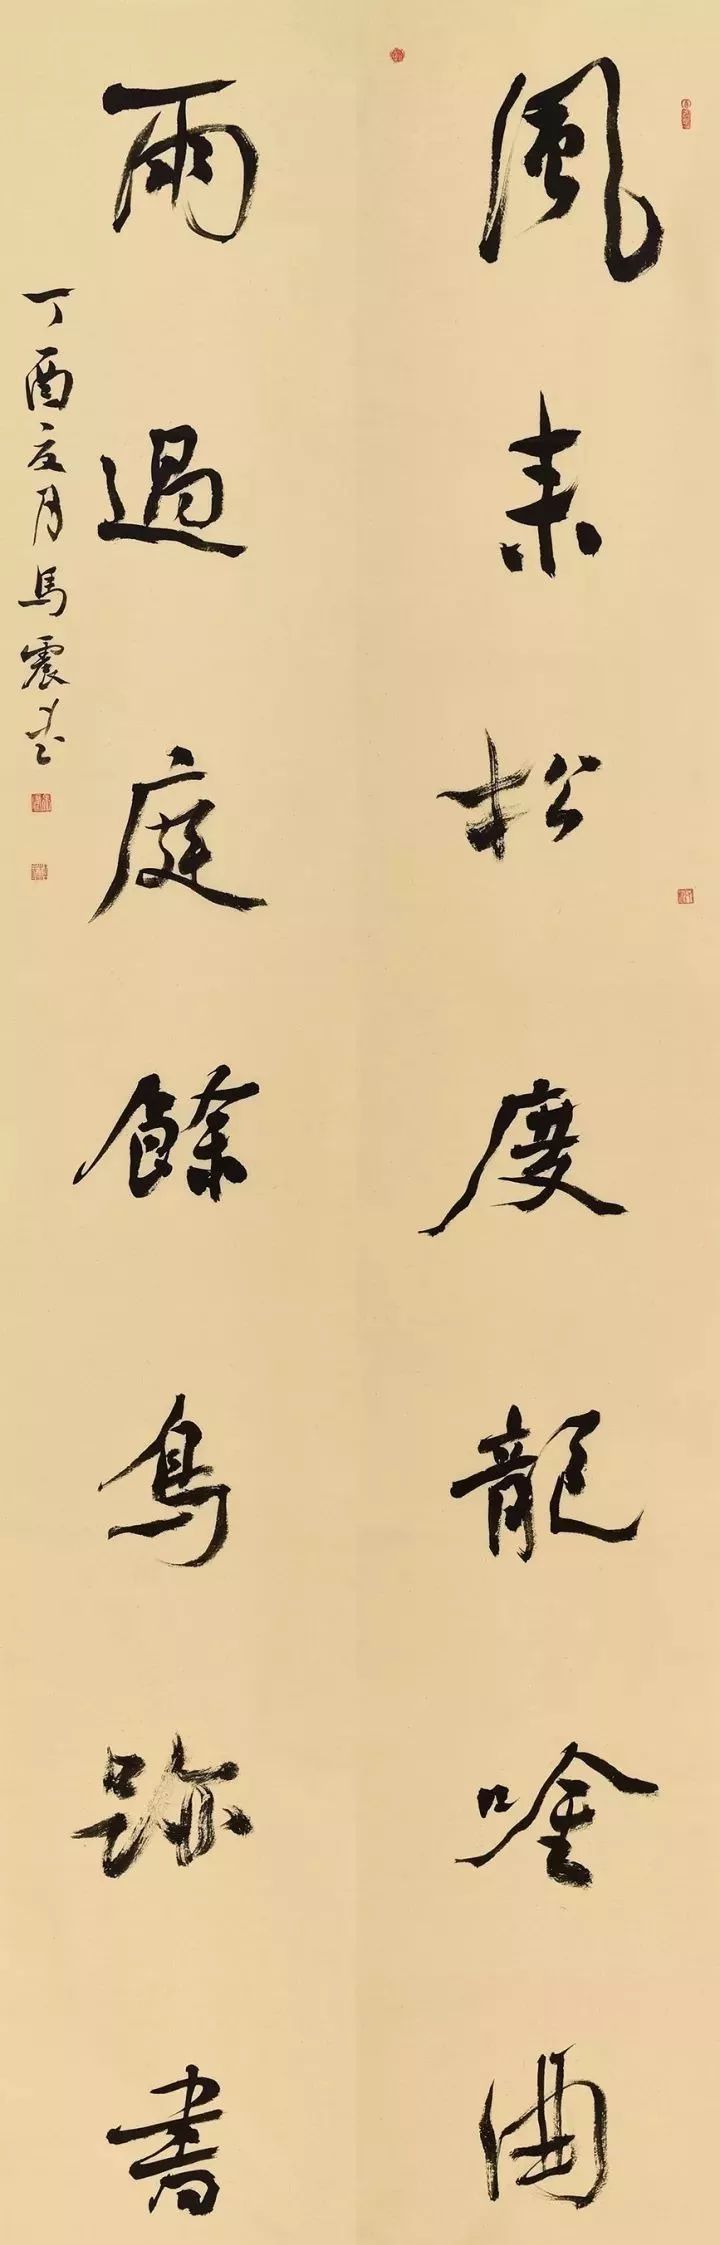 風來松度龍唫曲
雨過庭餘鳥跡書
丁酉月馬震